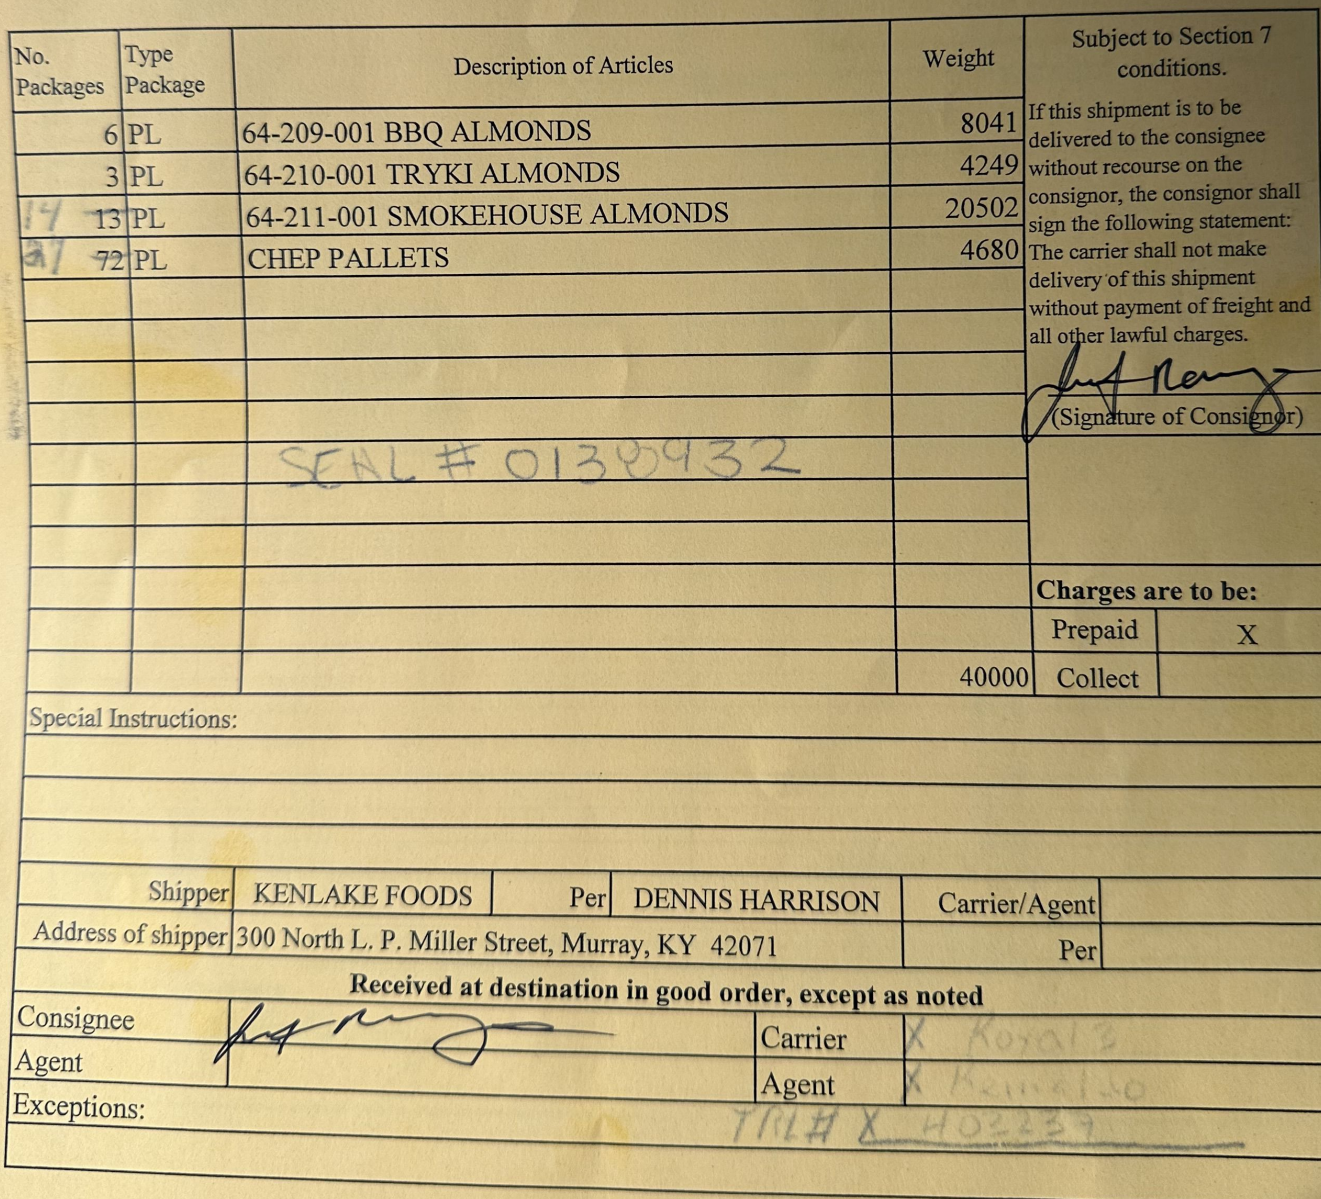 No. Packages Type Package Description of Articles Weight
6 PL 64-209-001 BBQ ALMONDS 8041
3 PL 64-210-001 TRYKI ALMONDS 4249
14 13 PL 64-211-001 SMOKEHOUSE ALMONDS 20502
72 PL CHEP PALLETS 4680
SEAL # 0138932
40000
Subject to Section 7
conditions.
If this shipment is to be
delivered to the consignee
without recourse on the
consignor, the consignor shall
sign the following statement:
The carrier shall not make
delivery of this shipment
without payment of freight and
all other lawful charges.
(Signature of Consignor)
Charges are to be:
Prepaid X
Collect
Special Instructions:
Shipper KENLAKE FOODS Per DENNIS HARRISON Carrier/Agent
Address of shipper 300 North L. P. Miller Street, Murray, KY 42071 Per
Received at destination in good order, except as noted
Consignee Carrier X Royal 3
Agent Agent X
Exceptions: TRL# X 403239